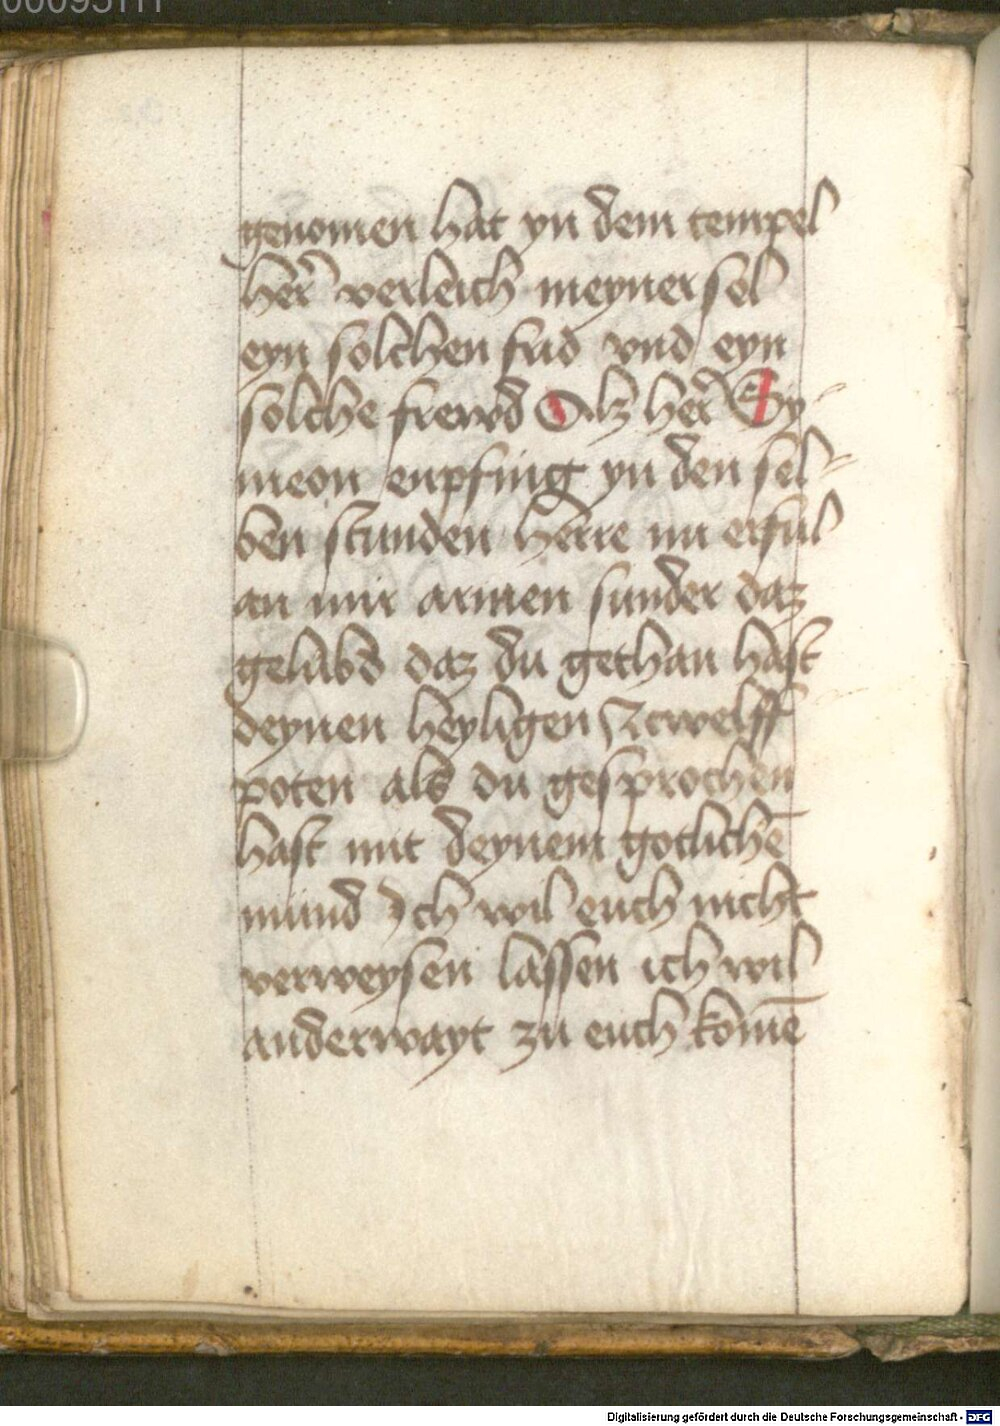 genomen hat yn dem tempel
her̄ verleich meyner sel
eyn solchen frid vnd eyn
solche frewd Alz her̄ Sy-
meon enpfing yn den sel-
ben stunden Herre nu erful
an mir armen sunder daz
gelubd daz du gethan hast
deynen heyligen Zcwelff
poten als du gesprochen
hast mit deynem gotlichē
mund Ich wil euch nicht
verweysen lassen ich wil
anderwayt zu euch komē
Digitalisierung gefördert durch die Deutsche Forschungsgemeinschaft - DFG